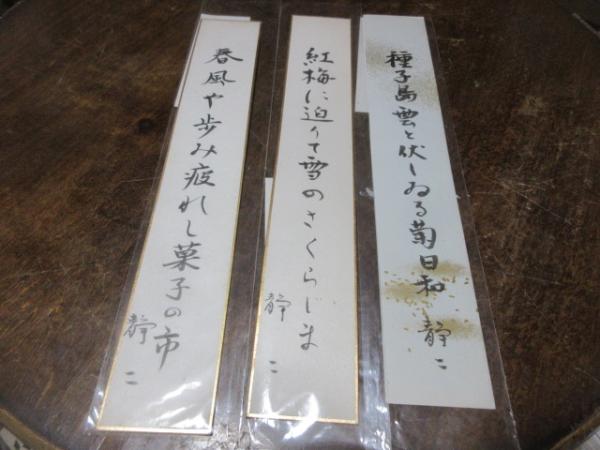 種子島雲と伏しゐる菊日和
静二
紅梅に迫りて雪のさくらじま
静二
春風や歩み疲れし菓子の市
静二